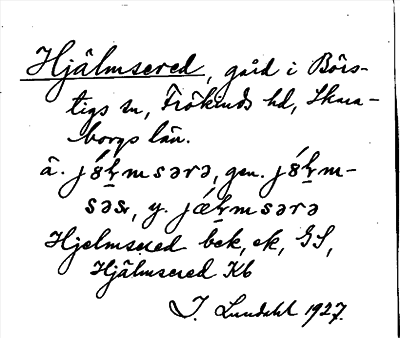 Hjälmsered, gård i Börs-
tigs sn, Frökinds hd, Skara-
borgs län.
ä. jöḻmsərə, gen. jöḻm-
səs, y. jæḻmsərə
Hjelmsered bek, ek, GS,
Hjälmsered Kb
J. Lundahl 1927.